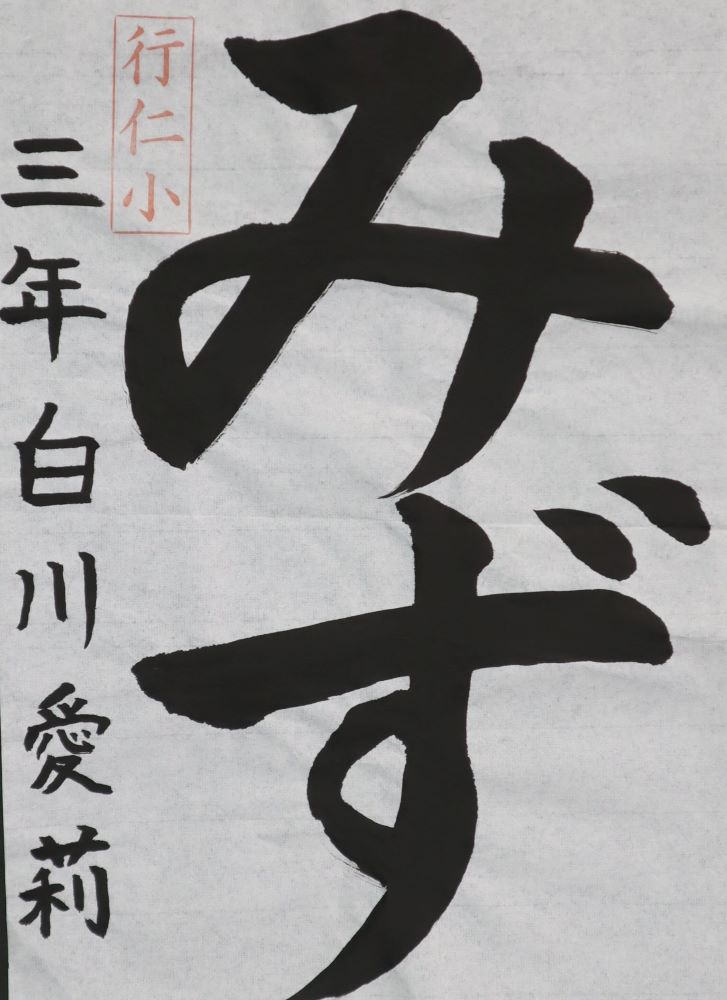 みず
行仁小
三年白川愛莉